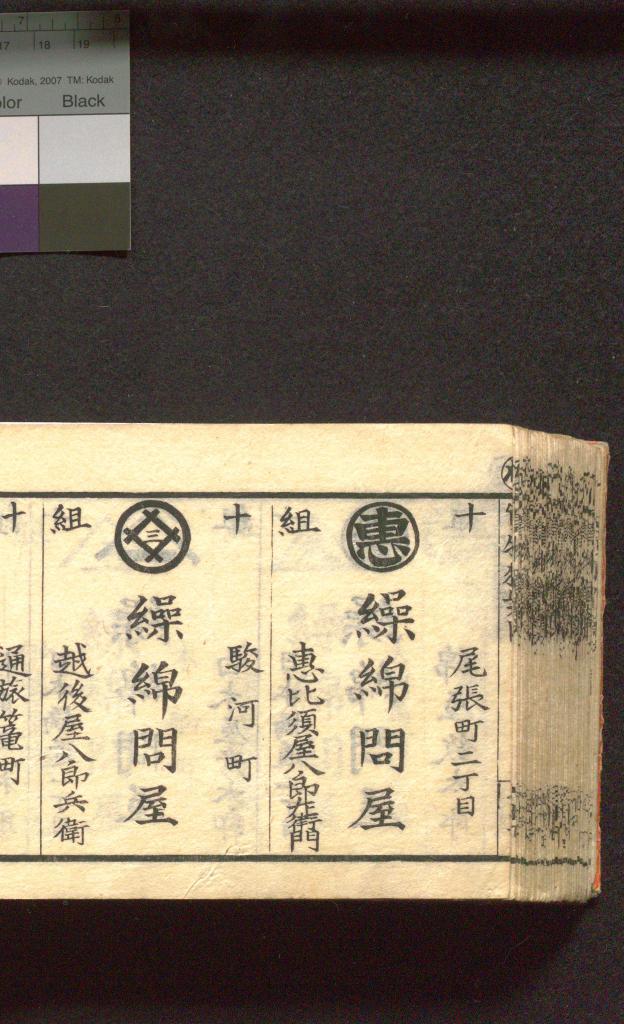 7 8
17 18 19
Kodak, 2007 TM: Kodak
lor Black
十
尾張町二丁目
惠
繰綿問屋
組
惠比須屋八郎左衛門
十
駿河町
三
繰綿問屋
組
越後屋八郎兵衛
十
通旅篭町